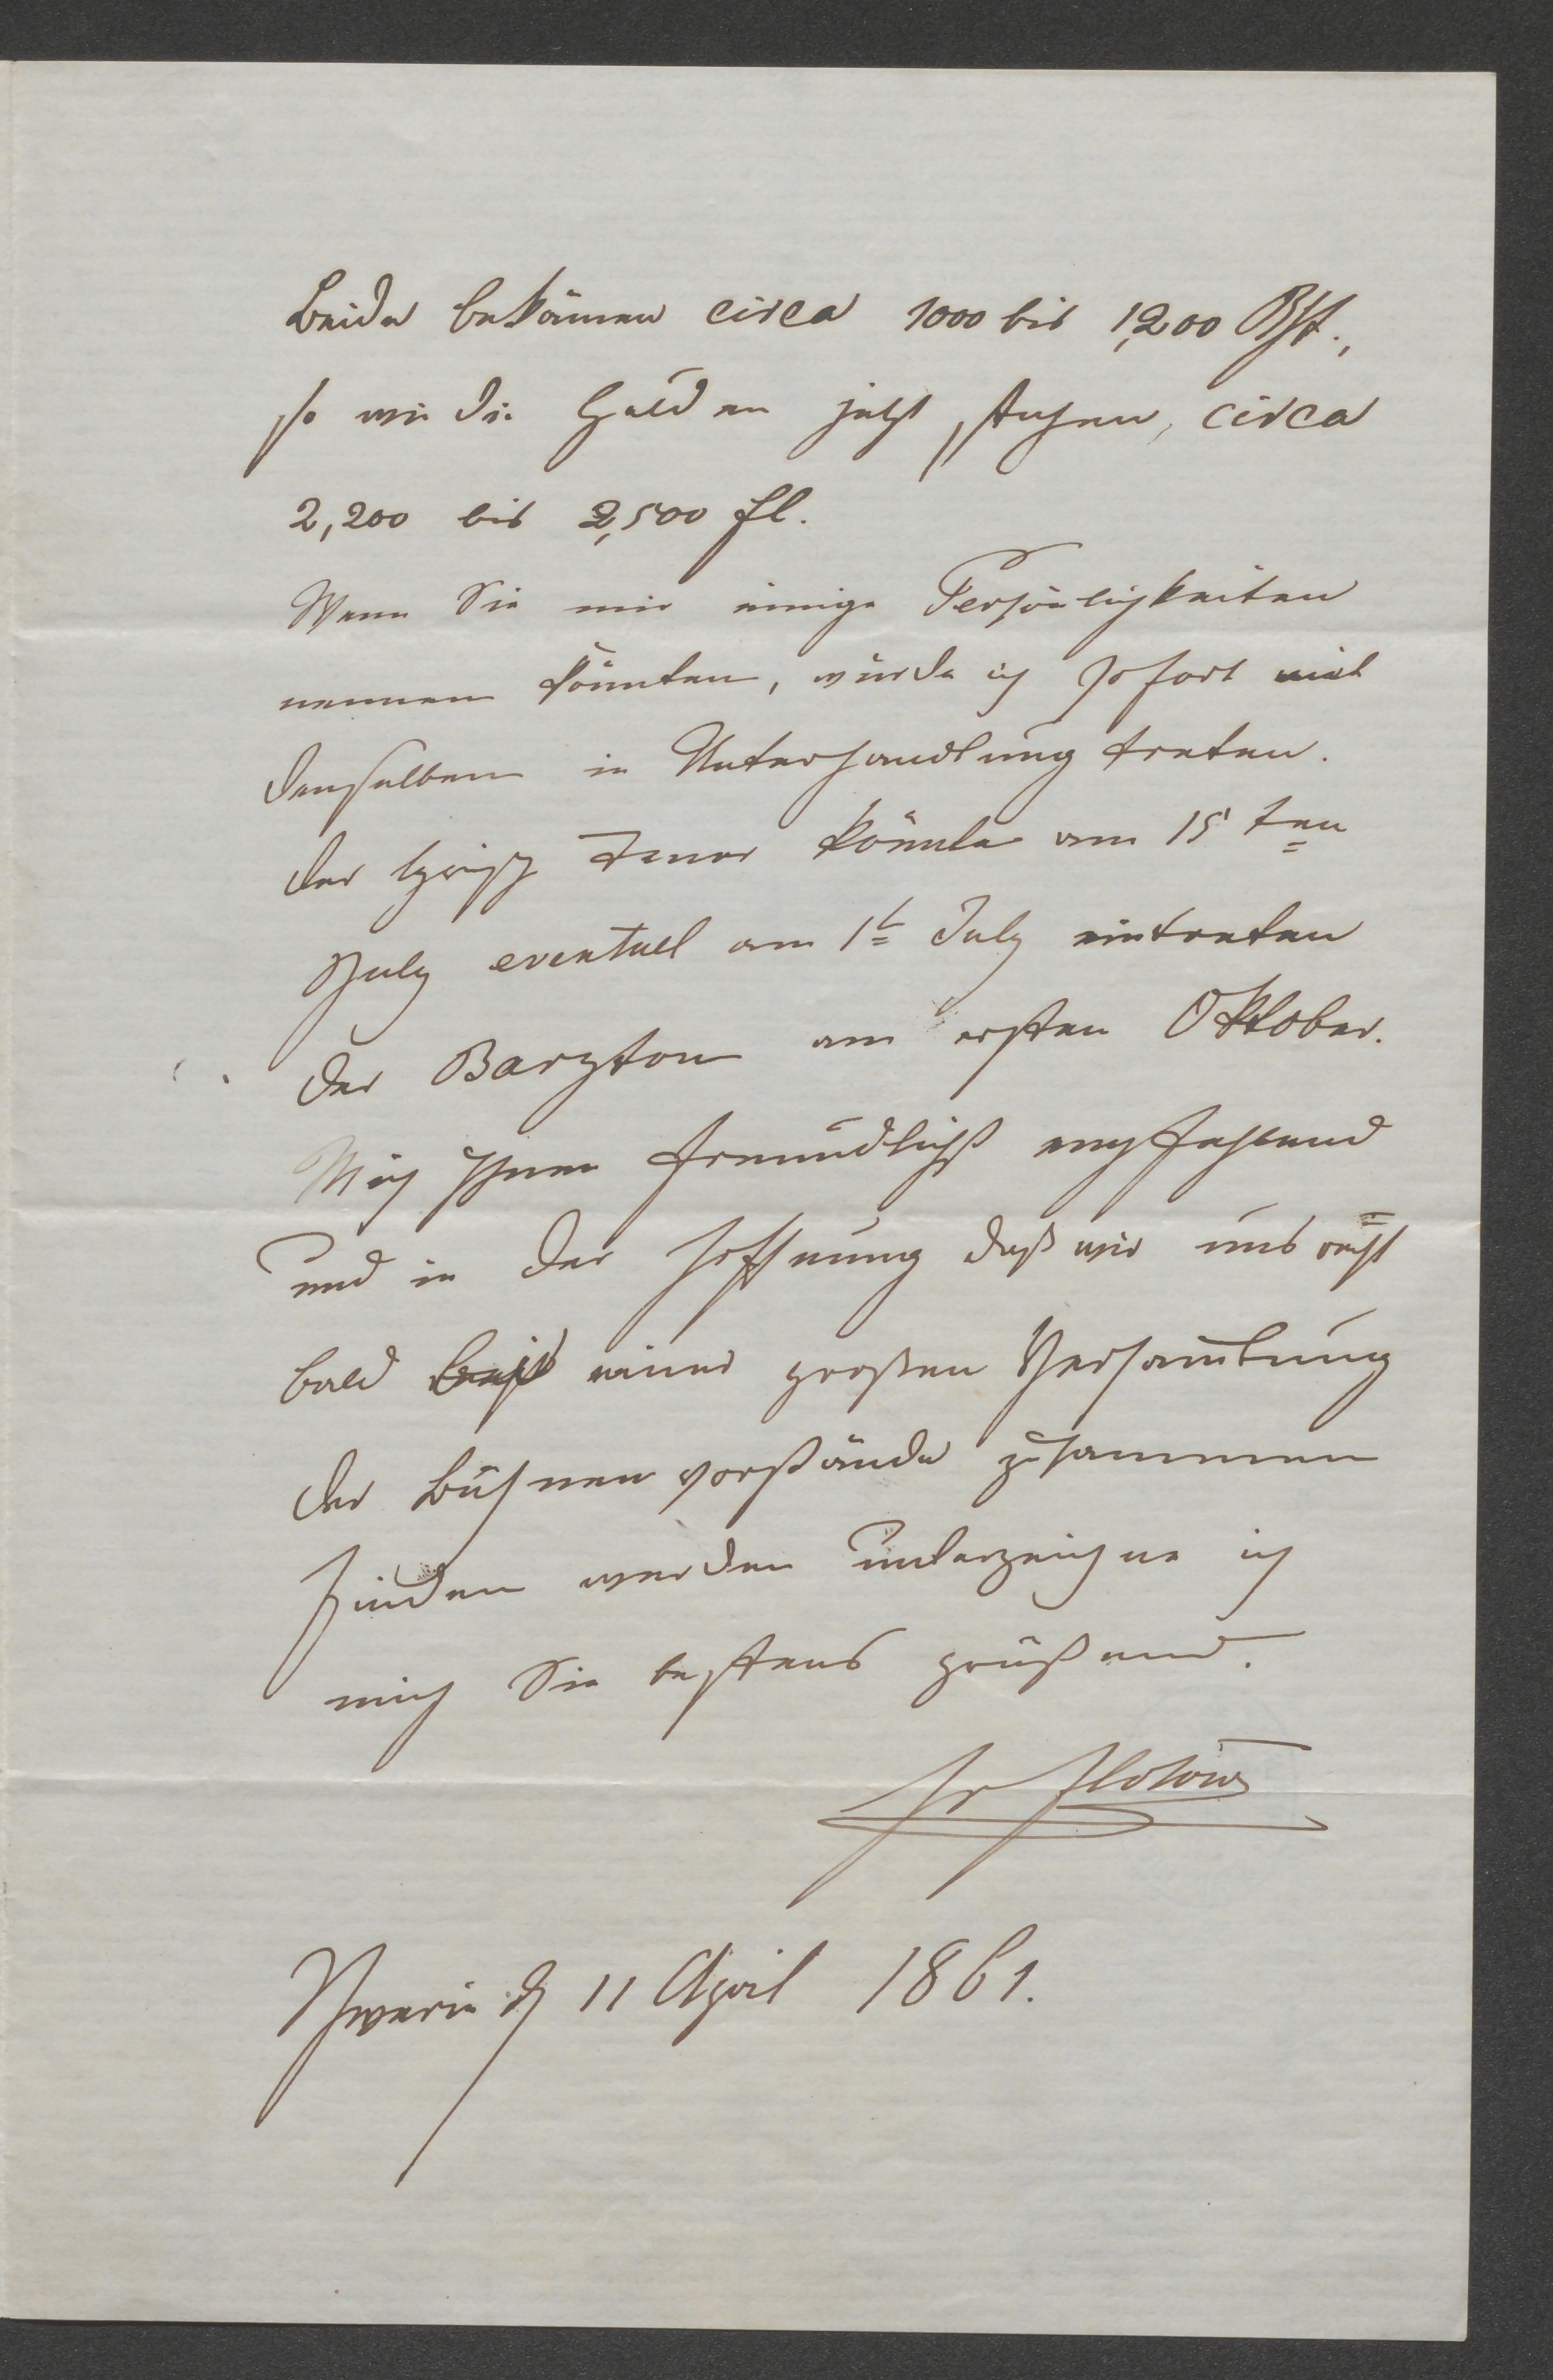 Beide bekämen circa 1000 bis 1,200 Rth.,
so wie die Gulden jetzt stehen, circa
2,200 bis 2,500 fl.
Wenn Sie mir einige Persönlichkeiten
nennen könnten, würde ich sofort mit
denselben in Unterhandlung treten.
der lyrisch Tenor könnte am 15ten
July eventuel am 1t July eintreten
der Baryton am ersten Oktober.
Mich Ihnen freundlichst empfehlend
und in der Hoffnung daß wir uns recht
bald einer großen Versamlung
der Bühnenvorstände zusammen
finden werden unterzeichne ich
mich Sie bestens grüßend.
Fr Flotow
Schwerin d 11 April 1861.